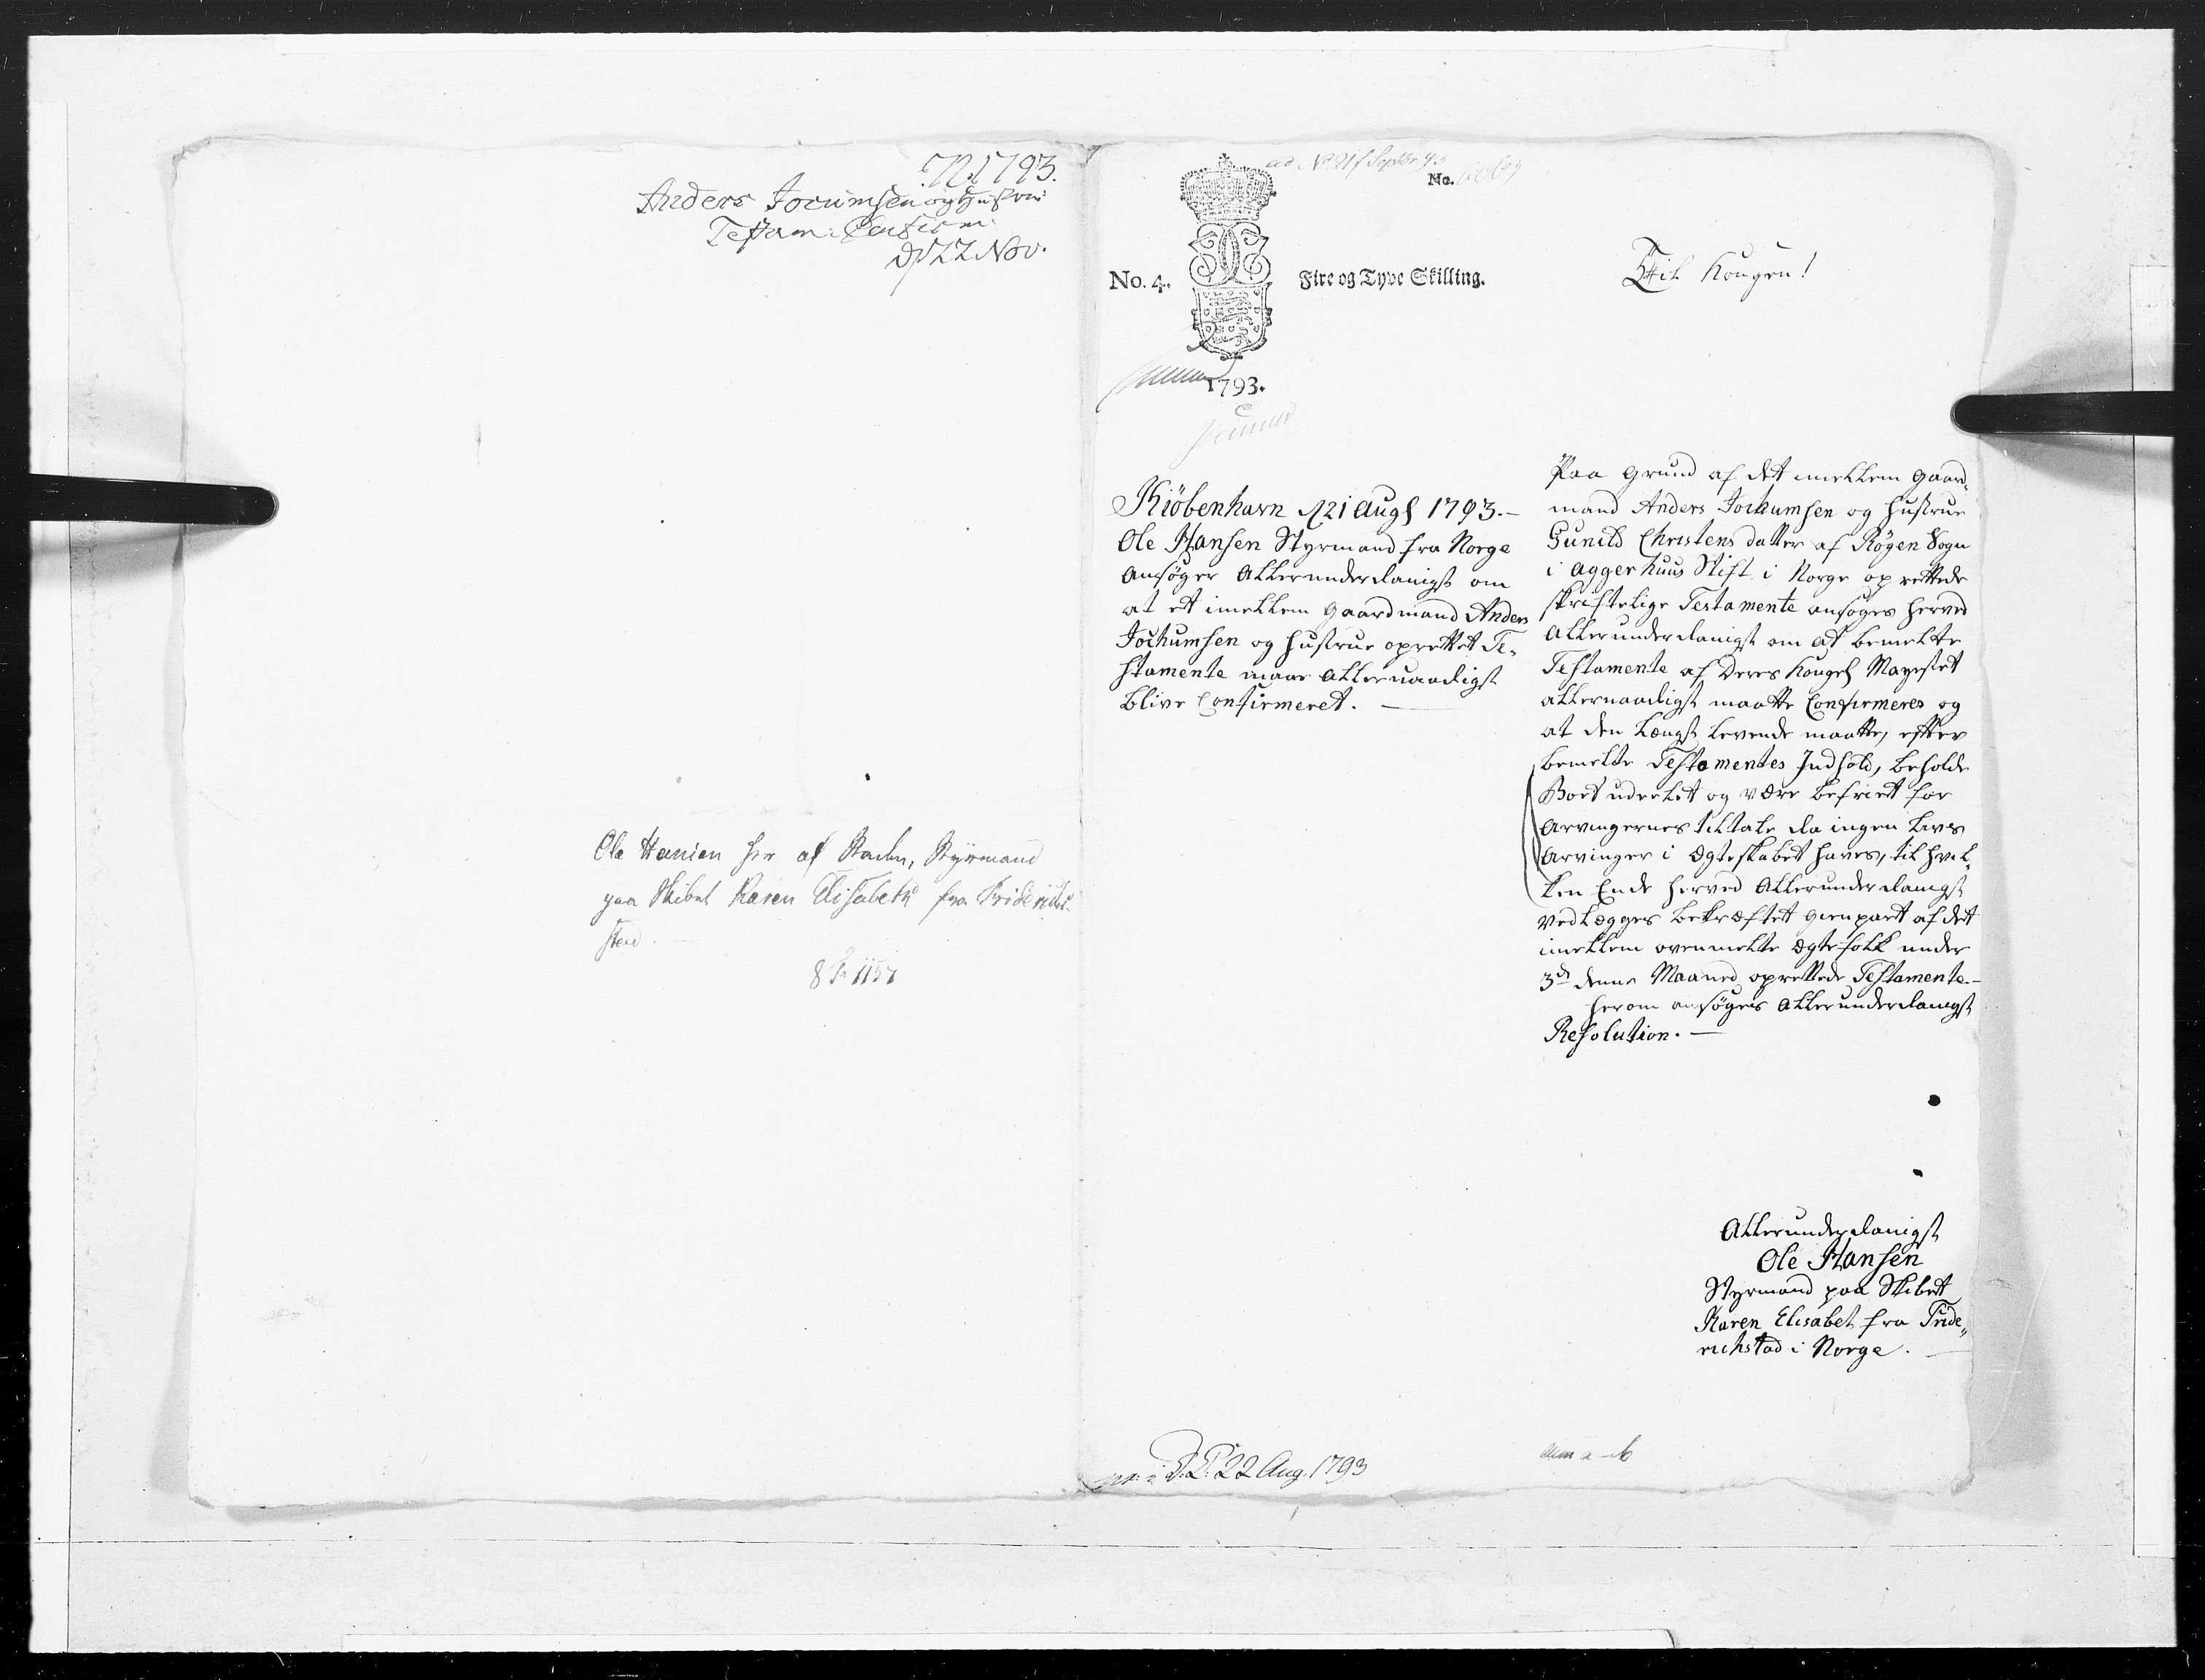 1793.
Anders Jocumsen og Hustrue
Testam: Confirm:
d/ 22 Nov.
Ole Hansen her af Staden, Styrmand
paa Skibet Karen Elisabeth fra Friderichs-
stad.
8 1157
ad No 21 f Septbr 93
No.
No. 4.
Fire og Tyve Skilling.
1793.
Til Kongen!
Kiöbenhavn d 21 Augs 1793.-
Ole Hansen Styrmand fra Norge
ansøger allerunderdanigst om
at et imellem Gaardmand Anders
Jochumsen og Hustrue oprettet Te-
stamente maae allernaadigst
blive Confirmeret.
Paa Grund af det imellem Gaard-
mand Anders Jochumsen og Hustrue
Gunild Christens datter af Røgen Sogn
i Aggerhuus Stift i Norge oprettede
skriftelige Testamente ansøges herved
allerunderdanigst om at bemelte
Testamente af Deres Kongel Mayestet
allernaadigst maatte Confirmeres og
at den længst levende maatte, efter
bemelte Testamentes Indhold, beholde
Boet udeelet og være befriet for
Arvingernes tiltale da ingen Livs
Arvinger i Ægteskabet haves, til hvil-
ken Ende herved allerunderdanigst
vedlægges bekræftet Gienpart af det
imellem ovenmelte Ægtefolk under
3de denne Maaned oprettede Testamente.-
herom ansøges allerunderdanigst
Resolution.
Allerunderdanigst
Ole Hansen
Styrmand paa Skibet
Karen Elisabet fra Fride„
richstad i Norge.
22 Aug. 1793